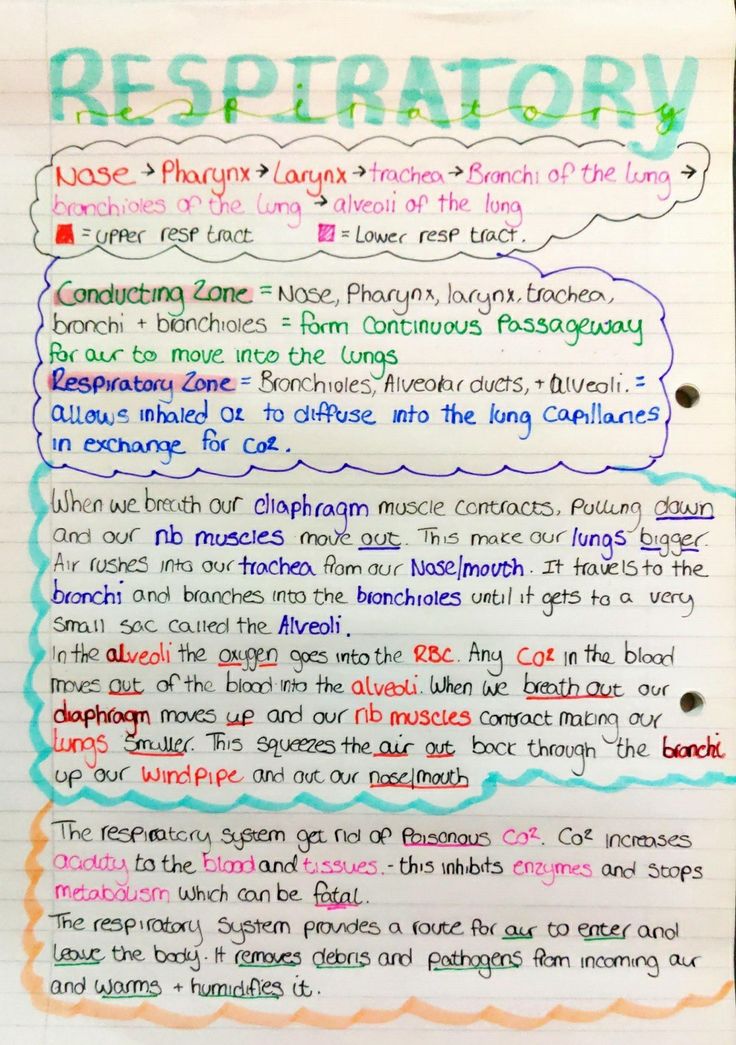 RESPIRATORY
respiratory
Nose → Pharynx → Larynx → trachea → Bronchi of the lung →
bronchioles of the lung → alveoli of the lung
= upper resp tract = Lower resp tract.
Conducting Zone = Nose, Pharynx, larynx, trachea,
bronchi + bronchioles = form continuous Passageway
for air to move into the lungs
Respiratory Zone = Bronchioles, Alveolar ducts, + alveoli. =
allows inhaled O2 to diffuse into the lung capillaries
in exchange for CO2.
When we breath our diaphragm muscle contracts, pulling down
and our rib muscles move out. This make our lungs bigger.
Air rushes into our trachea from our Nose/mouth. It travels to the
bronchi and branches into the bronchioles until it gets to a very
small sac called the Alveoli.
In the alveoli the oxygen goes into the RBC. Any CO2 in the blood
moves out of the blood into the alveoli. When we breath out our
diaphragm moves up and our rib muscles contract making our
lungs smaller. This squeezes the air out back through the bronchi
up our windpipe and out our nose/mouth
The respiratory system get rid of Poisonous CO2. CO2 increases
acidity to the blood and tissues. - this inhibits enzymes and stops
metabolism which can be fatal.
The respiratory system provides a route for air to enter and
leave the body. It removes debris and pathogens from incoming air
and warms + humidifies it.